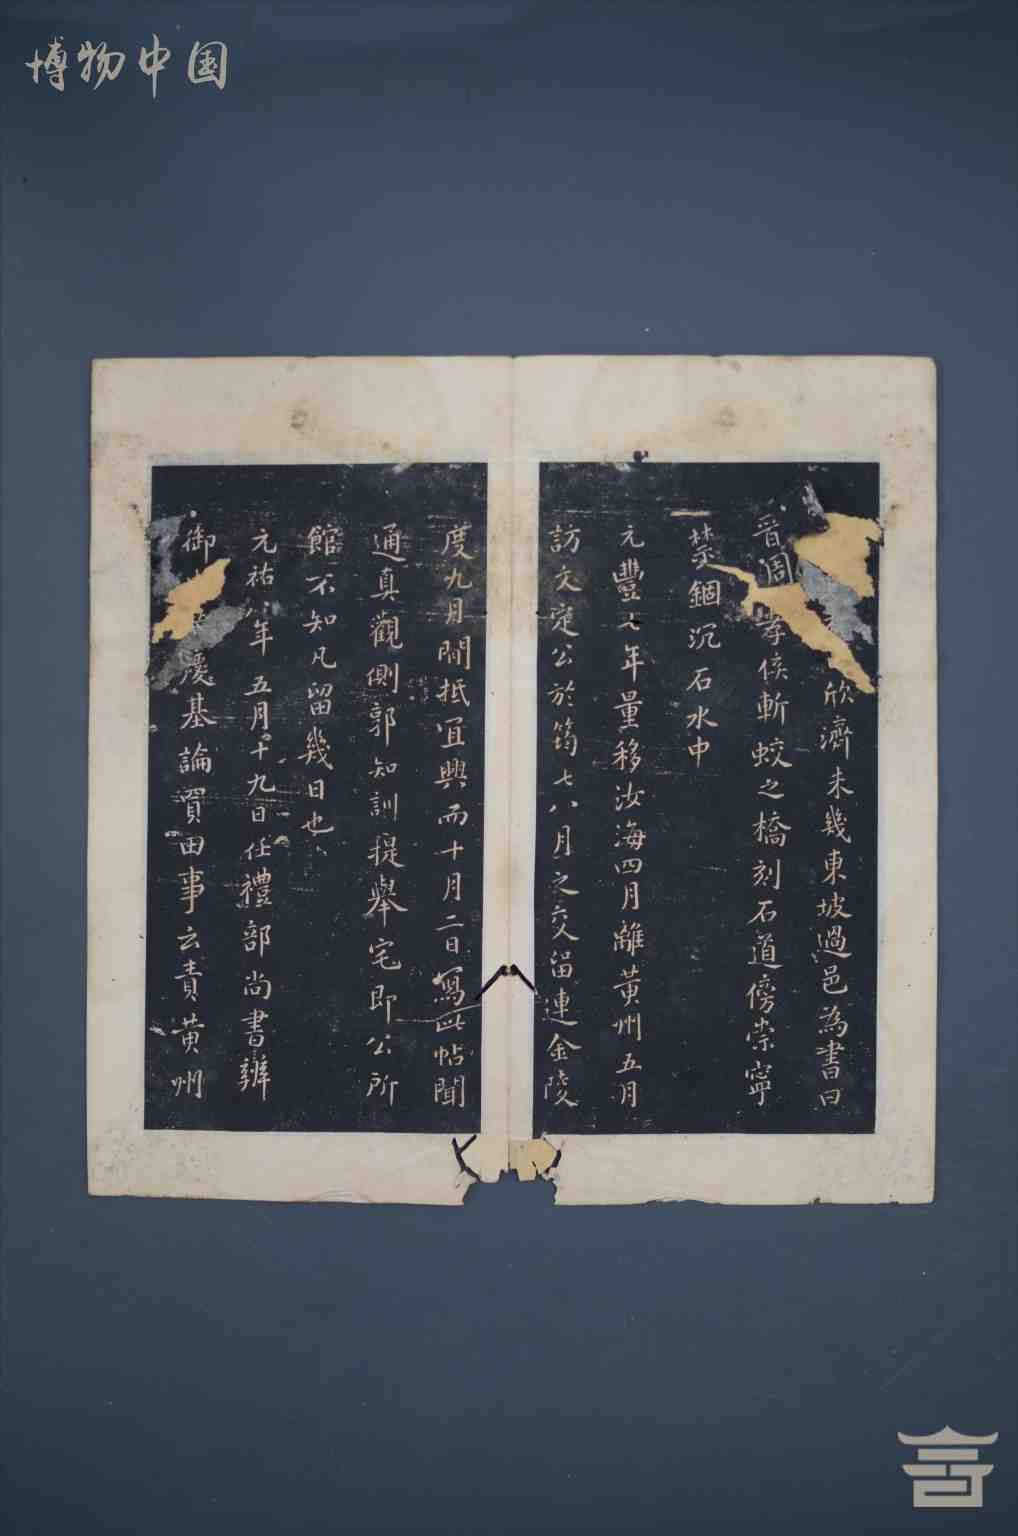 博物中国
欣濟未幾東坡過邑為書曰
晉周孝侯斬蛟之橋刻石道傍崇寧
禁錮沉石水中
元豐七年量移汝海四月離黃州五月
訪文定公於筠七八月之交留連金陵
度九月間抵宜興而十月二日寫此帖聞
通真觀側郭知訓提舉宅即公所
館不知凡留幾日也
元祐八年五月十九日任禮部尚書辨
御慶基論買田事云責黃州